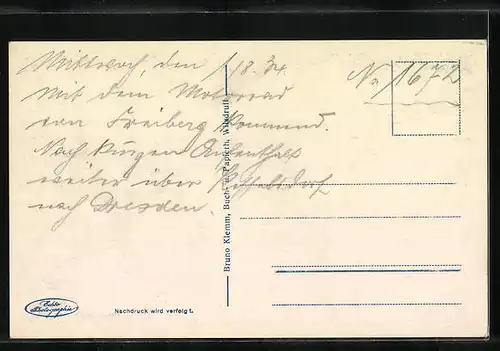 Mittwoch, den 1/8.34
No 1672
Mit dem Motorrad
von Freiberg kommend.
Nach kurzen Aufenthalt
weiter über Kesselsdorf
nach Dresden.
Bruno Klemm, Buch- u. Papierh. Wilsdruff
Echte
Photographie
Nachdruck wird verfolgt.